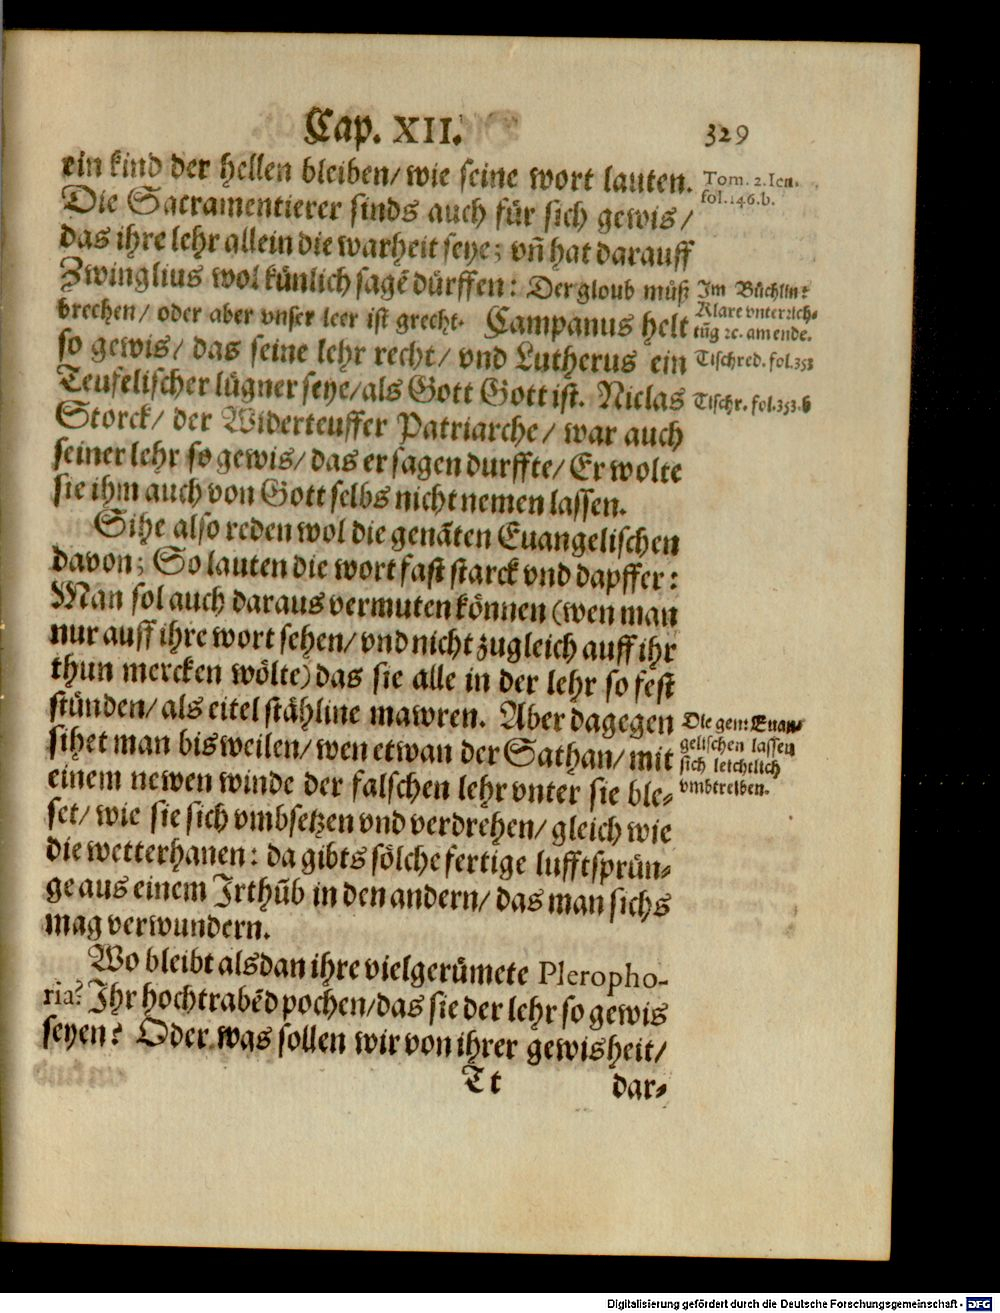 Cap. XII. 329
ein kind der hellen bleiben/ wie seine wort lauten.
Die Sacramentierer sinds auch für sich gewis/
das ihre lehr allein die warheit seye; vñ hat darauff
Zwinglius wol künlich sagē dürffen: Der gloub müß
brechen/ oder aber vnser leer ist grecht. Campanus helt
so gewis/ das seine lehr recht/ vnd Lutherus ein
Teufelischer lügner seye/ als Gott Gott ist. Niclas
Storck/ der Widerteuffer Patriarche/ war auch
seiner lehr so gewis/ das er sagen durffte/ Er wolte
sie ihm auch von Gott selbs nicht nemen lassen.
Sihe also reden wol die genāten Euangelischen
davon; So lauten die wort fast starck vnd dapffer:
Man sol auch daraus vermuten können (wen man
nur auff ihre wort sehen/ vnd nicht zugleich auff ihr
thun mercken wölte) das sie alle in der lehr so fest
stünden/ als eitel stähline mawren. Aber dagegen
sihet man bisweilen/ wen etwan der Sathan/ mit
einem newen winde der falschen lehr vnter sie ble-
set/ wie sie sich vmbsetzen vnd verdrehen/ gleich wie
die wetterhanen: da gibts sölche fertige lufftsprün-
ge aus einem Irthūb in den andern/ das man sichs
mag verwundern.
Wo bleibt alsdan ihre vielgerümete Pleropho-
ria? Ihr hochtrabēd pochen/ das sie der lehr so gewis
seyen? Oder was sollen wir von ihrer gewisheit/
Tt dar-
Tom. 2. Ien.
fol. 146. b.
Im Büchlin:
Klare vnterrich-
tūg ꝛc. am ende.
Tischred. fol. 353
Tischr. fol. 353. b
Die gen: Euan-
gelischen lassen
sich leichtlich
vmbtreiben.
Digitalisierung gefördert durch die Deutsche Forschungsgemeinschaft - DFG